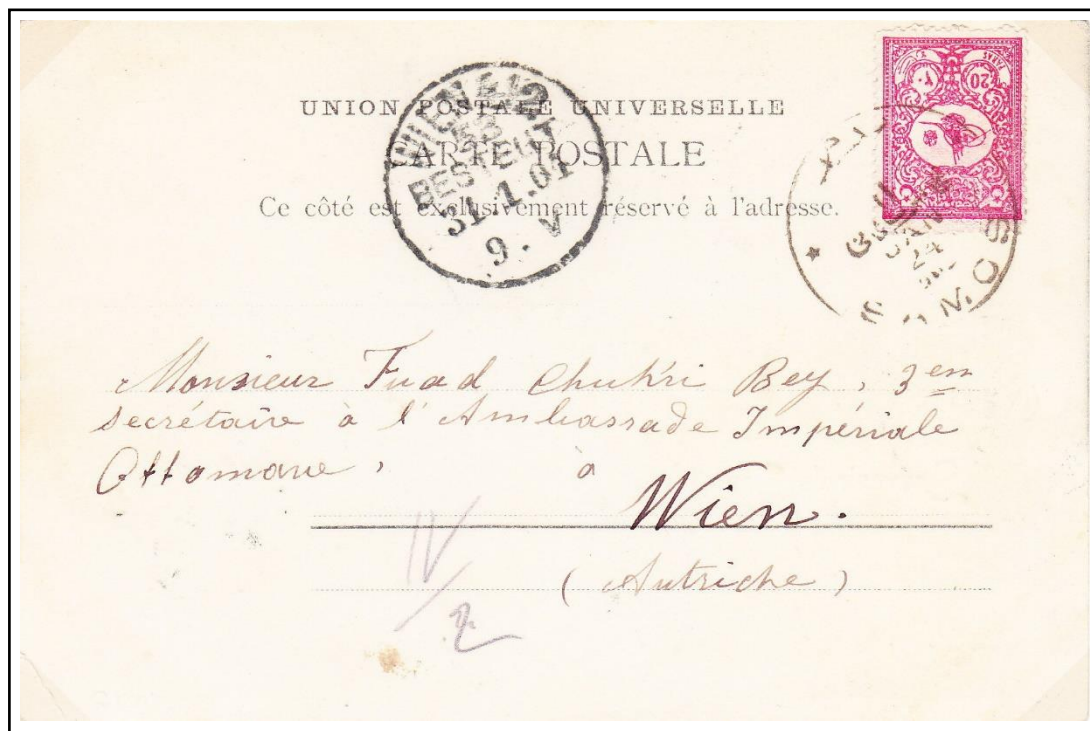 UNION POSTALE UNIVERSELLE
CARTE POSTALE
Ce côté est exclusivement réservé à l'adresse.
WIEN 4/2
BESTELLT
31.1.01
9.V
20
JAN
24
Monsieur Fuad Chukri Bey, 3en
secrétaire à l'Ambassade Impériale
Ottomane, à
Wien.
(Autriche)
IV/2